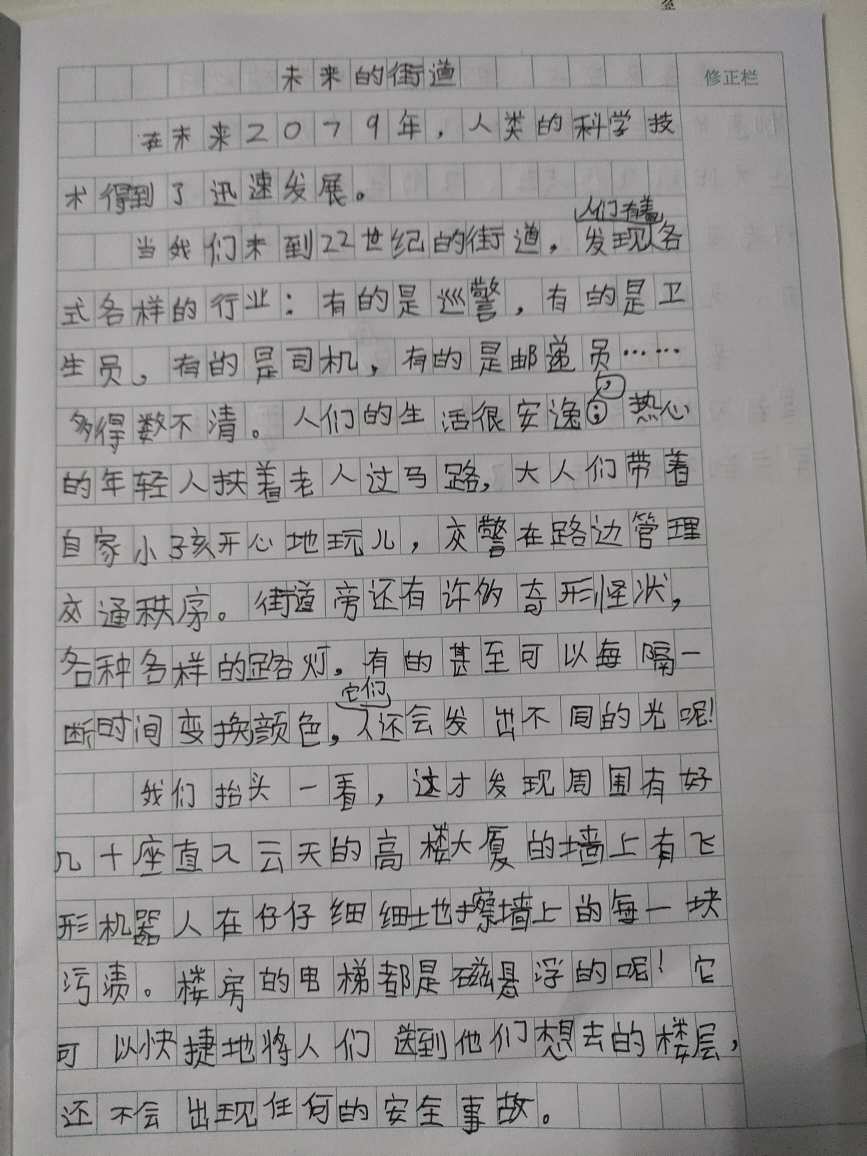 未来的街道
修正栏
在未来2079年，人类的科学技
术得到了迅速发展。
人们有着
当我们来到22世纪的街道，发现各
式各样的行业：有的是巡警，有的是卫
生员，有的是司机，有的是邮递员……
多得数不清。人们的生活很安逸，热心
的年轻人扶着老人过马路，大人们带着
自家小孩开心地玩儿，交警在路边管理
交通秩序。街道旁还有许的奇形怪状，
各种各样的路灯，有的甚至可以每隔一
它们
断时间变换颜色，还会发出不同的光呢！
我们抬头一看，这才发现周围有好
几十座直入云天的高楼大厦的墙上有飞
形机器人在仔仔细细地擦墙上的每一块
污渍。楼房的电梯都是磁悬浮的呢！它
可以快捷地将人们送到他们想去的楼层，
还不会出现任何的安全事故。